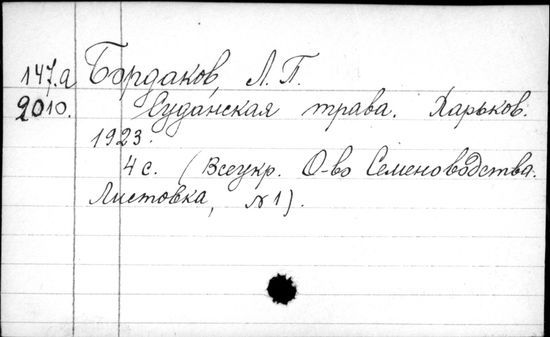 147.а Бордаков, Л. П.
2010. Суданская трава. Харьков.
1923.
4 с. (Всеукр. О-во Семеноводства.
Листовка, №1).